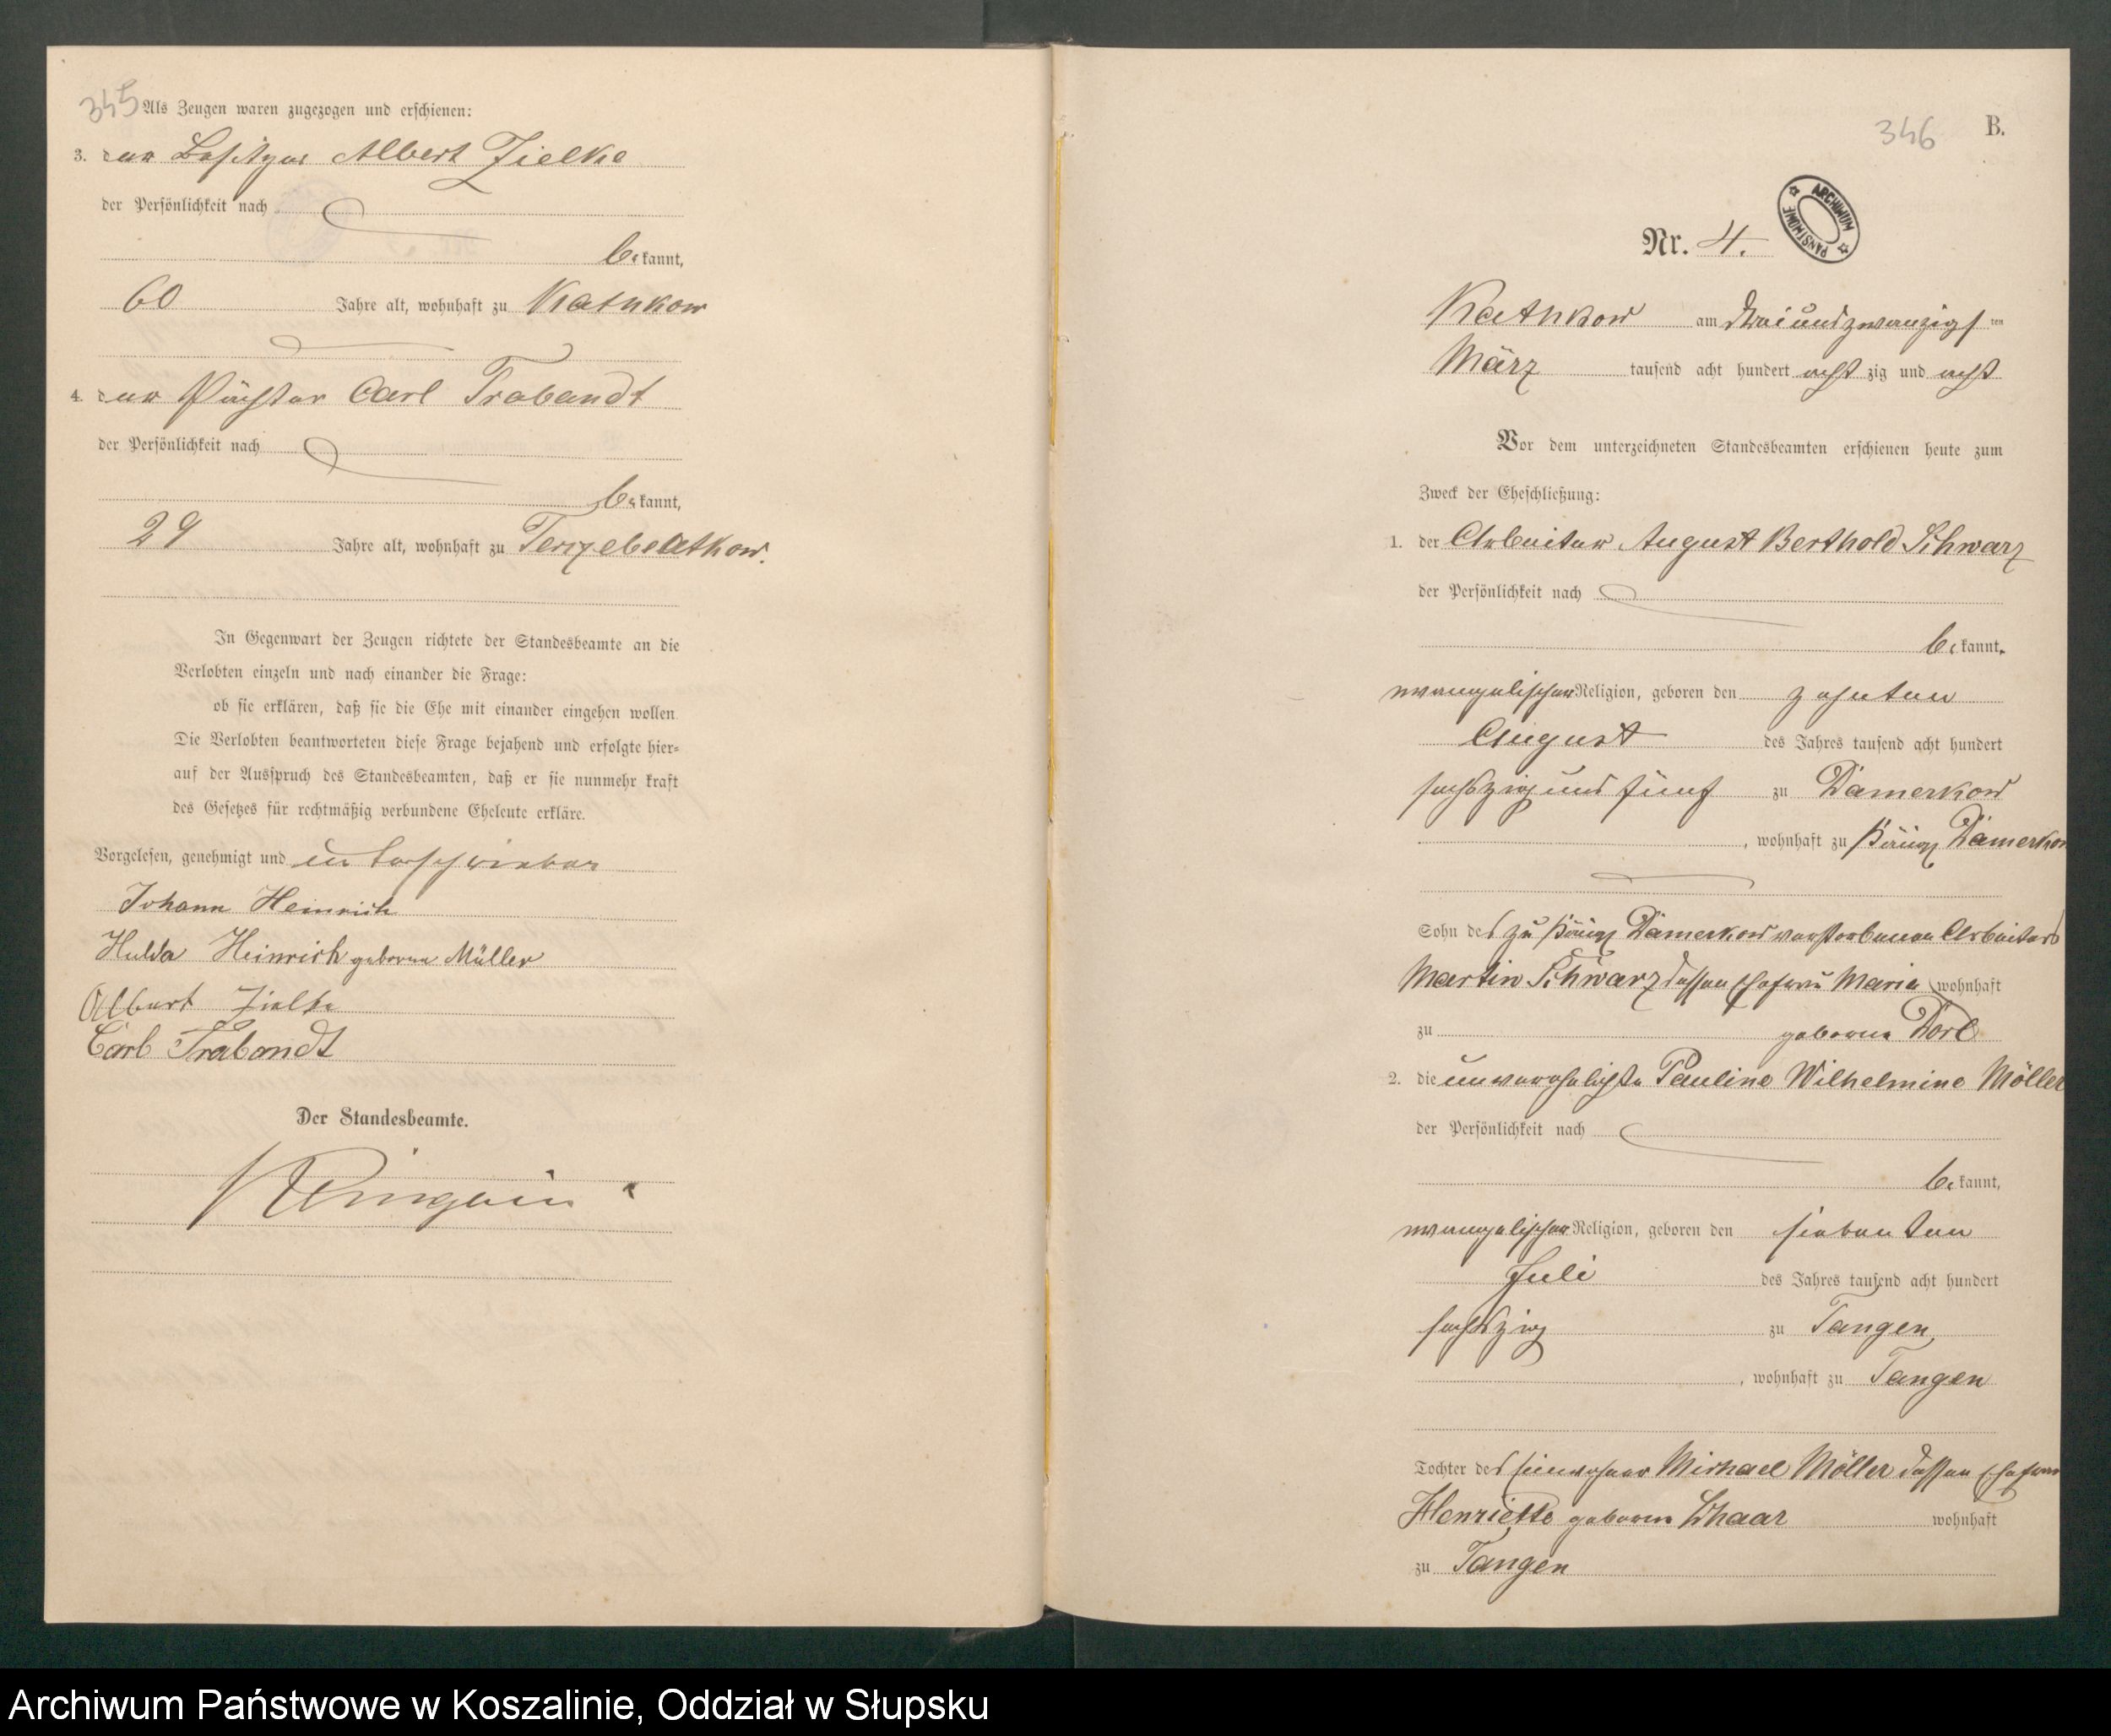 345
Als Zeugen waren zugezogen und erschienen:
3. der Besitzer Albert Zielke
der Persönlichkeit nach
bekannt,
60 Jahre alt, wohnhaft zu Kathkow
4. der Pächter Carl Trabandt
der Persönlichkeit nach
bekannt,
29 Jahre alt, wohnhaft zu
In Gegenwart der Zeugen richtete der Standesbeamte an die
Verlobten einzeln und nach einander die Frage:
ob sie erklären, daß sie die Ehe mit einander eingehen wollen.
Die Verlobten beantworteten diese Frage bejahend und erfolgte hier-
auf der Ausspruch des Standesbeamten, daß er sie nunmehr kraft
des Gesetzes für rechtmäßig verbundene Eheleute erkläre.
Vorgelesen, genehmigt und unterschrieben
Johann Heinrich
Hulda Heinrich geborne Müller
Albert Zielke
Carl Trabandt
Der Standesbeamte.
346
B.
ARCHIWUM PAŃSTWOWE
Nr. 4.
Kathkow am dreiundzwanzigsten
März tausend acht hundert achtzig und acht
Vor dem unterzeichneten Standesbeamten erschienen heute zum
Zweck der Eheschließung:
1. der Arbeiter August Berthold Schwarz
der Persönlichkeit nach
bekannt.
evangelischer Religion, geboren den zehnten
August des Jahres tausend acht hundert
sechszig und fünf zu Dämerkow
, wohnhaft zu Dämerkow
Sohn des zu Dämerkow verstorbenen Arbeiters
Martin Schwarz dessen Ehefrau Maria wohnhaft
zu geborne
2. die unverehelichte Pauline Wilhelmine Möller
der Persönlichkeit nach
bekannt,
evangelischer Religion, geboren den siebenten
Juli des Jahres tausend acht hundert
sechszig zu Tangen
, wohnhaft zu Tangen
Tochter des Einwohner Michael Möller dessen Ehefrau
Henriette geborne wohnhaft
zu Tangen
Archiwum Państwowe w Koszalinie, Oddział w Słupsku